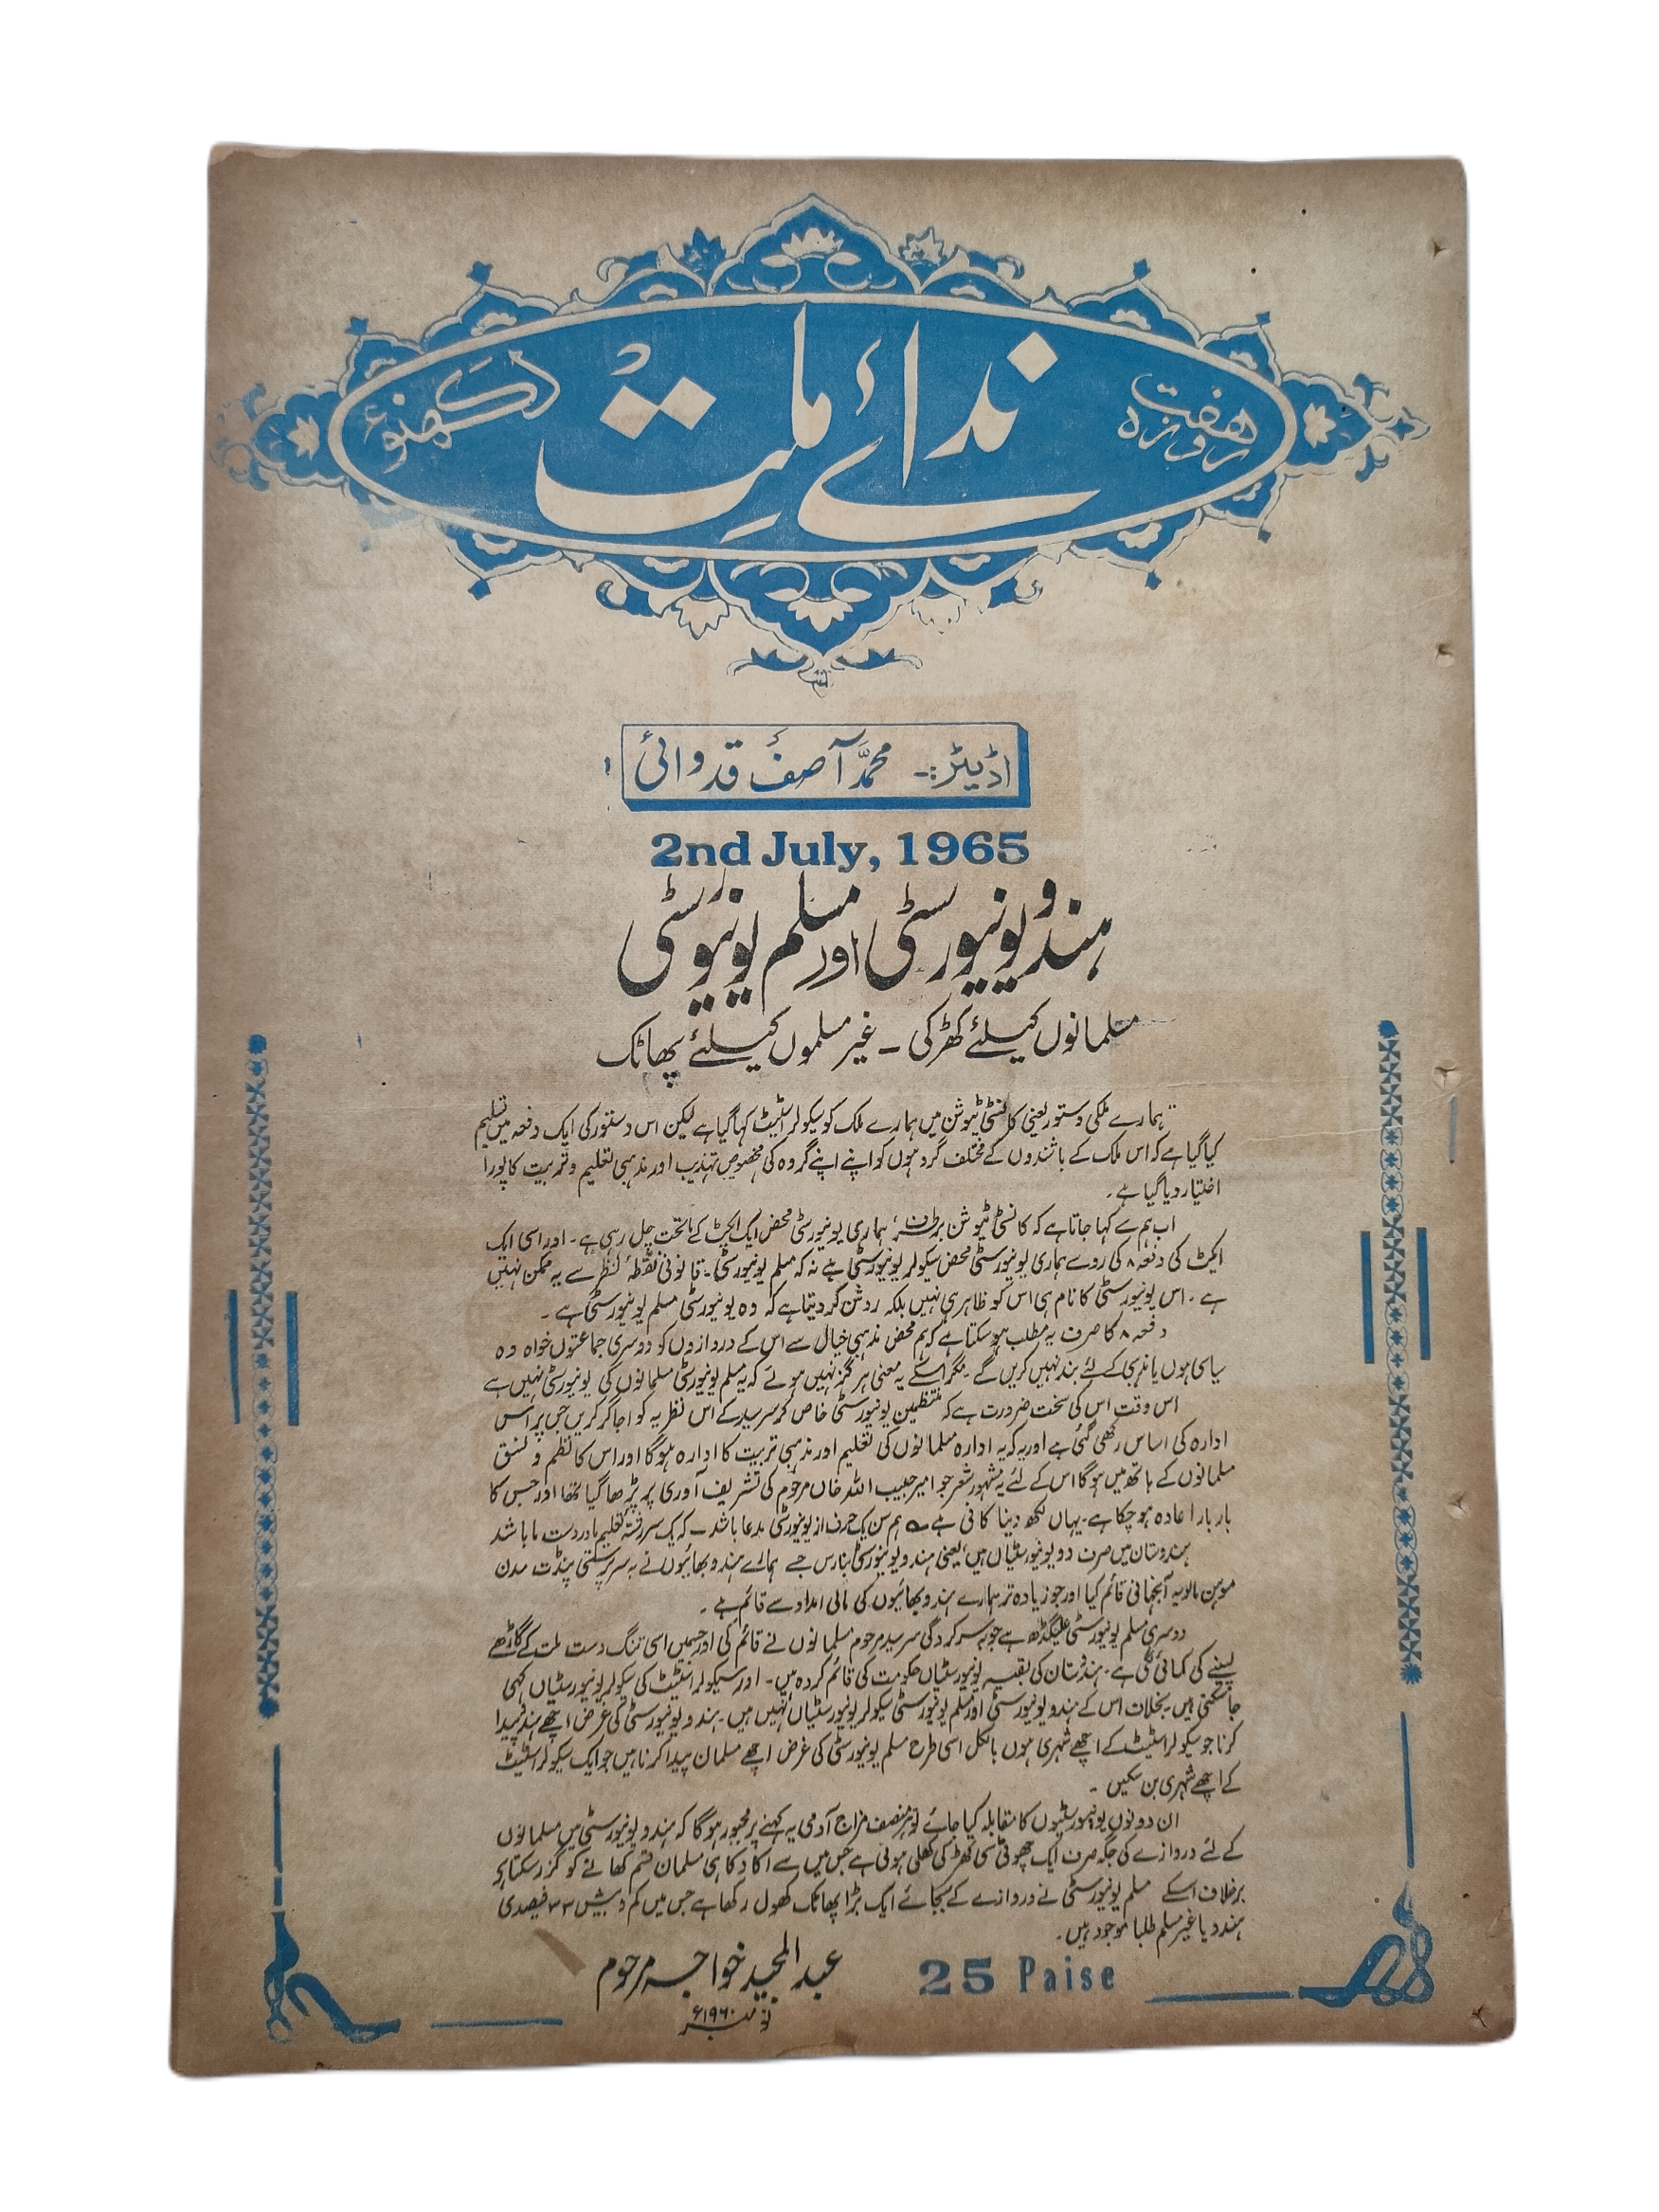 ہفت روزہ
ندائے ملت
لکھنؤ
اڈیٹر:- محمد آصف قدوائی
2nd July, 1965
ہندو یونیورسٹی اور مسلم یونیورسٹی
مسلمانوں کیلئے کھڑکی - غیر مسلموں کیلئے پھاٹک
ہمارے ملکی دستور یعنی کانسٹی ٹیوشن میں ہمارے ملک کو سیکولر اسٹیٹ کہا گیا ہے لیکن اس دستور کی ایک دفعہ میں تسلیم
کیا گیا ہے کہ اس ملک کے باشندوں کے مختلف گروہوں کو اپنے اپنے گروہ کی مخصوص تہذیب اور مذہبی تعلیم و تربیت کا پورا
اختیار دیا گیا ہے۔
اب ہم سے کہا جاتا ہے کہ کانسٹی ٹیوشن برطرف، ہماری یونیورسٹی محض ایک ایکٹ کے ماتحت چل رہی ہے۔ اور اسی ایک
ایکٹ کی دفعہ ۸ کی رو سے ہماری یونیورسٹی محض سیکولر یونیورسٹی ہے نہ کہ مسلم یونیورسٹی۔ قانونی نقطۂ نظر سے یہ ممکن نہیں
ہے۔ اس یونیورسٹی کا نام ہی اس کو ظاہر ہی نہیں بلکہ روشن کر دیتا ہے کہ وہ یونیورسٹی مسلم یونیورسٹی ہے۔
دفعہ ۸ کا صرف یہ مطلب ہو سکتا ہے کہ ہم محض مذہبی خیال سے اس کے دروازوں کو دوسری جماعتوں خواہ وہ
سیاسی ہوں یا مذہبی کے لئے بند نہیں کریں گے۔ مگر اسکے یہ معنی ہرگز نہیں ہوتے کہ یہ مسلم یونیورسٹی مسلمانوں کی یونیورسٹی نہیں ہے
اس وقت اس کی سخت ضرورت ہے کہ منتظمین یونیورسٹی خاص کر سرسید کے اس نظریہ کو اجاگر کریں جس پر اس
ادارہ کی اساس رکھی گئی ہے اور یہ کہ یہ ادارہ مسلمانوں کی تعلیم اور مذہبی تربیت کا ادارہ ہوگا اور اس کا نظم و نسق
مسلمانوں کے ہاتھ میں ہوگا اس کے لئے یہ مشہور شعر جو امیر حبیب اللہ خاں مرحوم کی تشریف آوری پر پڑھا گیا تھا اور جس کا
بار بار اعادہ ہو چکا ہے۔ یہاں لکھ دینا کافی ہے ؎ ہمیں یک حرف از یونیورسٹی مدعا باشد - کہ یک سررشتۂ تعلیم ما در دست ما باشد
ہندوستان میں صرف دو یونیورسٹیاں ہیں، یعنی ہندو یونیورسٹی بنارس جسے ہمارے ہندو بھائیوں نے بہ سرپرستی پنڈت مدن
موہن مالویہ آنجہانی قائم کیا اور جو زیادہ تر ہمارے ہندو بھائیوں کی مالی امداد سے قائم ہے۔
دوسری مسلم یونیورسٹی علیگڑھ ہے جو بہ سرکردگی سرسید مرحوم مسلمانوں نے قائم کی اور جسمیں اسی تنگ دست ملت کے گاڑھے
پسینے کی کمائی لگی ہے۔ ہندوستان کی بقیہ یونیورسٹیاں حکومت کی قائم کردہ ہیں۔ اور سیکولر اسٹیٹ کی سیکولر یونیورسٹیاں کہی
جا سکتی ہیں۔ بخلاف اس کے ہندو یونیورسٹی اور مسلم یونیورسٹی سیکولر یونیورسٹیاں نہیں ہیں۔ ہندو یونیورسٹی کی غرض اچھے ہندو پیدا
کرنا جو سیکولر اسٹیٹ کے اچھے شہری ہوں بالکل اسی طرح مسلم یونیورسٹی کی غرض اچھے مسلمان پیدا کرنا ہیں جو ایک سیکولر اسٹیٹ
کے اچھے شہری بن سکیں۔
ان دونوں یونیورسٹیوں کا مقابلہ کیا جائے تو ہر منصف مزاج آدمی یہ کہنے پر مجبور ہوگا کہ ہندو یونیورسٹی میں مسلمانوں
کے لئے دروازے کی جگہ صرف ایک چھوٹی سی کھڑکی کھلی ہوئی ہے جس میں سے اکا دکا ہی مسلمان قسم کھانے کو گزر سکتا ہے
برخلاف اسکے مسلم یونیورسٹی نے دروازے کے بجائے ایک بڑا پھاٹک کھول رکھا ہے جس میں کم و بیش ۳۳ فیصدی
ہندو یا غیر مسلم طلبا موجود ہیں۔
عبد المجید خواجہ مرحوم
نومبر ۱۹۶۰ء
25 Paise